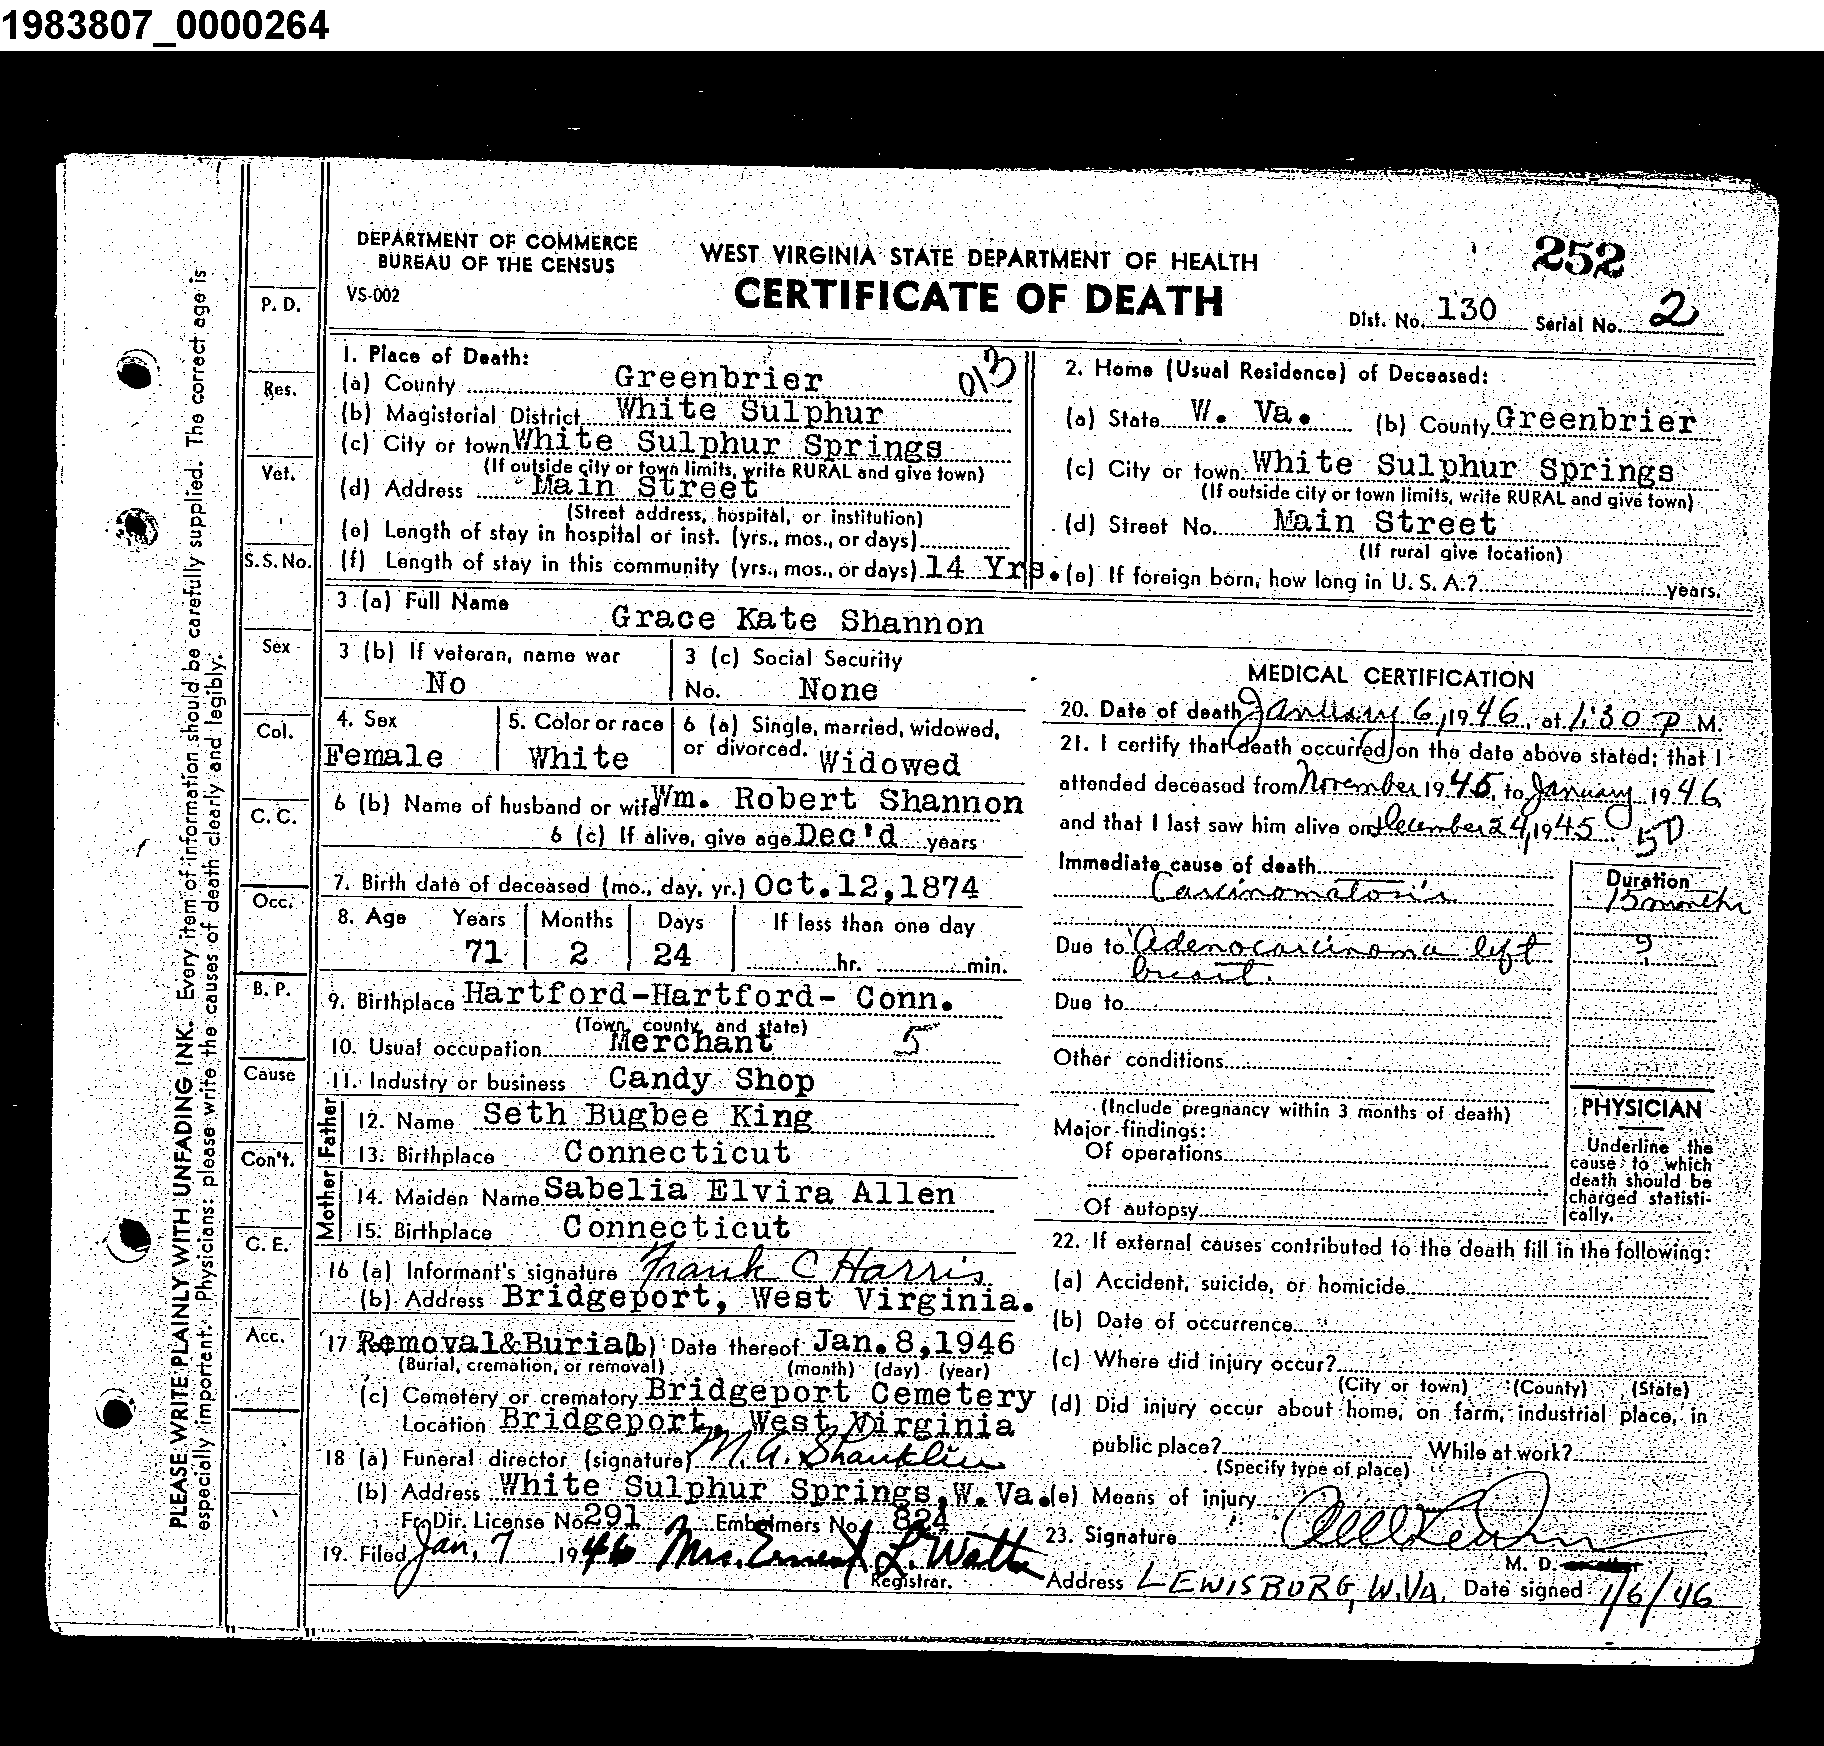 1983807_0000264
DEPARTMENT OF COMMERCE
BUREAU OF THE CENSUS
VS-002
WEST VIRGINIA STATE DEPARTMENT OF HEALTH
CERTIFICATE OF DEATH
252
Dist. No. 130 Serial No. 2
PLEASE WRITE PLAINLY WITH UNFADING INK. Every item of information should be carefully supplied. The correct age is
especially important. Physicians: please write the causes of death clearly and legibly.
P. D.
Res.
Vet.
S. S. No.
Sex
Col.
C. C.
Occ.
B. P.
Cause
Con't.
C. E.
Acc.
1. Place of Death:
(a) County Greenbrier 013
(b) Magisterial District White Sulphur
(c) City or town White Sulphur Springs
(If outside city or town limits, write RURAL and give town)
(d) Address Main Street
(Street address, hospital, or institution)
(e) Length of stay in hospital or inst. (yrs., mos., or days)
(f) Length of stay in this community (yrs., mos., or days) 14 Yrs.
2. Home (Usual Residence) of Deceased:
(a) State W. Va. (b) County Greenbrier
(c) City or town White Sulphur Springs
(If outside city or town limits, write RURAL and give town)
(d) Street No. Main Street
(If rural give location)
(e) If foreign born, how long in U. S. A.? years.
3 (a) Full Name Grace Kate Shannon
3 (b) If veteran, name war No
3 (c) Social Security No. None
4. Sex Female
5. Color or race White
6 (a) Single, married, widowed, or divorced. Widowed
6 (b) Name of husband or wife Wm. Robert Shannon
6 (c) If alive, give age Dec'd years
7. Birth date of deceased (mo., day, yr.) Oct.12,1874
8. Age Years Months Days If less than one day
71 2 24 hr. min.
9. Birthplace Hartford-Hartford- Conn.
(Town, county, and state)
10. Usual occupation Merchant 5
11. Industry or business Candy Shop
Father
12. Name Seth Bugbee King
13. Birthplace Connecticut
Mother
14. Maiden Name Sabelia Elvira Allen
15. Birthplace Connecticut
16 (a) Informant's signature Frank C Harris
(b) Address Bridgeport, West Virginia.
17 Removal&Burial (b) Date thereof Jan.8,1946
(Burial, cremation, or removal) (month) (day) (year)
(c) Cemetery or crematory Bridgeport Cemetery
Location Bridgeport, West Virginia
18 (a) Funeral director (signature) M. A. Shanklin
(b) Address White Sulphur Springs,W.Va.
Fr. Dir. License No 291 Embalmers No 824
19. Filed Jan, 7 1946 Mrs. Ernest L. Watts
Registrar.
MEDICAL CERTIFICATION
20. Date of death January 6, 1946, at 1:30 P. M.
21. I certify that death occurred on the date above stated; that I
attended deceased from November 1945, to January 1946
and that I last saw him alive on December 24, 1945 50
Immediate cause of death
Carcinomatosis
Duration
15 months
Due to Adenocarcinoma left ?
breast.
Due to
Other conditions
(Include pregnancy within 3 months of death)
Major findings:
Of operations
Of autopsy
PHYSICIAN
Underline the
cause to which
death should be
charged statisti-
cally.
22. If external causes contributed to the death fill in the following:
(a) Accident, suicide, or homicide
(b) Date of occurrence
(c) Where did injury occur?
(City or town) (County) (State)
(d) Did injury occur about home, on farm, industrial place, in
public place? While at work?
(Specify type of place)
(e) Means of injury
23. Signature
M. D.
Address LEWISBURG, W.VA. Date signed 1/6/46